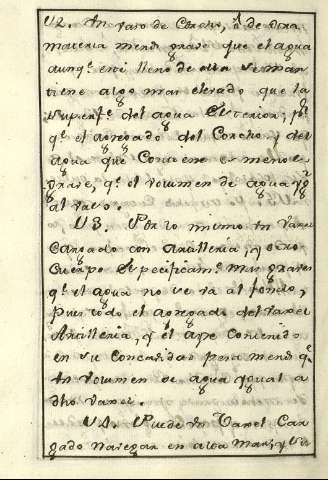 112. Un vaso de Corcho, ó de otra
materia menos grave que el agua
aunq.e esté lleno de ella se man
tiene algo mas elevado que la
superf.e del agua Exterior; p.r
q.e el agregado del Corcho, y del
agua que Contiene es menos
grave, q.e el volumen de agua yg.l
al vaso.
113. Por lo mismo Un Vaxel
Cargado con Artilleria, y otro
Cuerpo Especificam.te mas graves
q.e el agua no se vá al fondo,
pues todo el agregado del Vaxel
Artilleria, y el ayre Contenido
en su Concavidad pesa menos q.e
Un Volumen de agua ygual a
dho Vaxel.
114. Puede Un Vaxel Car
gado Navegar en alta Mar, y